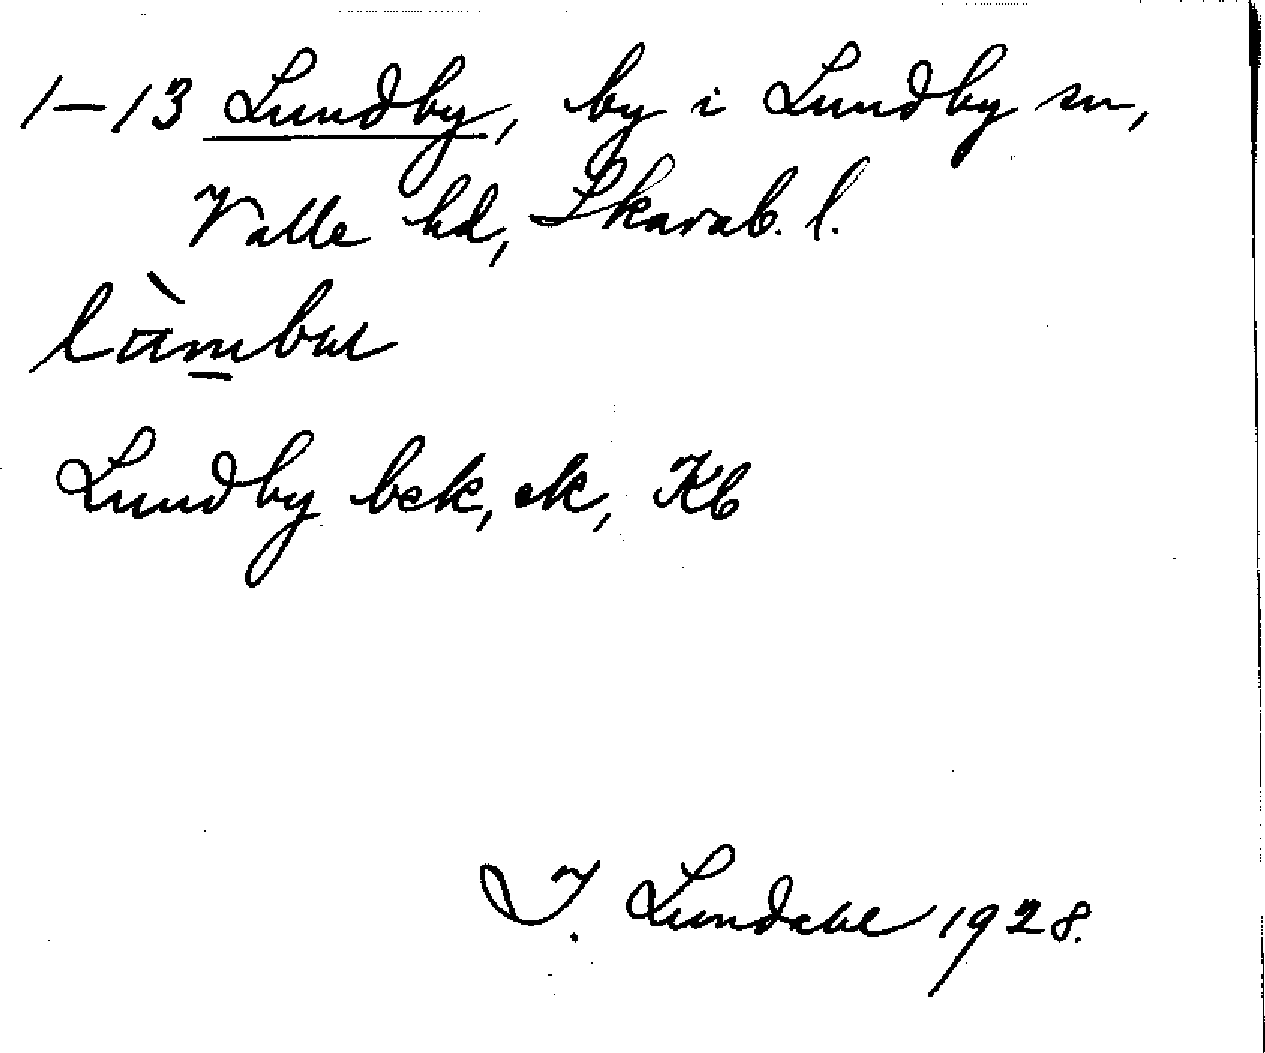 1–13 Lundby, by i Lundby sn,
Valle hd, Skarab. l.
Lundby bek, ek, Kb
I. Lundahl 1928.